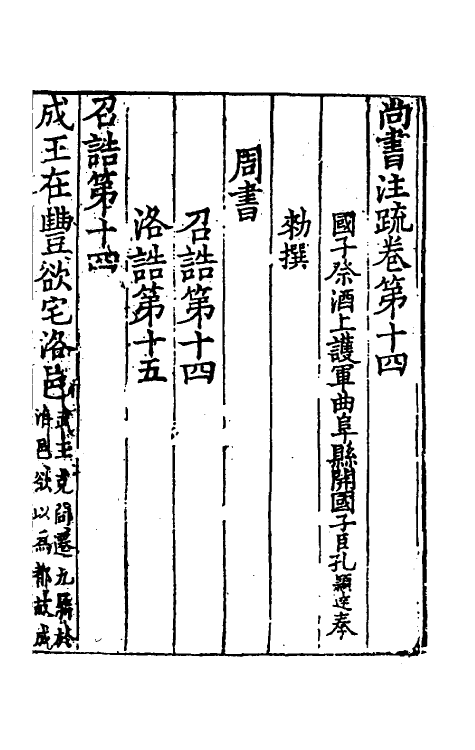 尚書注疏卷第十四
國子祭酒上護軍曲阜縣開國子臣孔穎達奉
勑撰
周書
召誥第十四
洛誥第十五
召誥第十四
成王在豐欲宅洛邑
武王克商遷九鼎於
洛邑欲以爲都故成